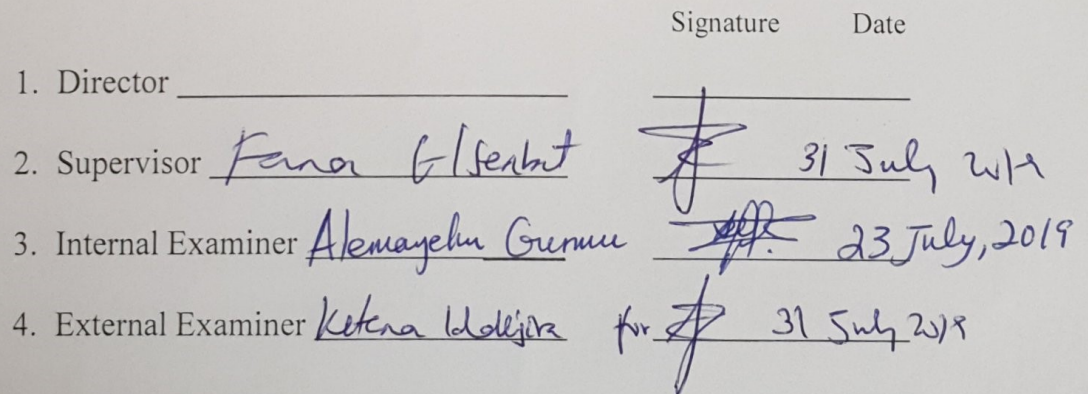 Signature Date
1. Director
2. Supervisor Fana G/Senbet 31 July 2019
3. Internal Examiner Alemayehu Gurmu 23 July, 2019
4. External Examiner Ketena for 31 July 2019